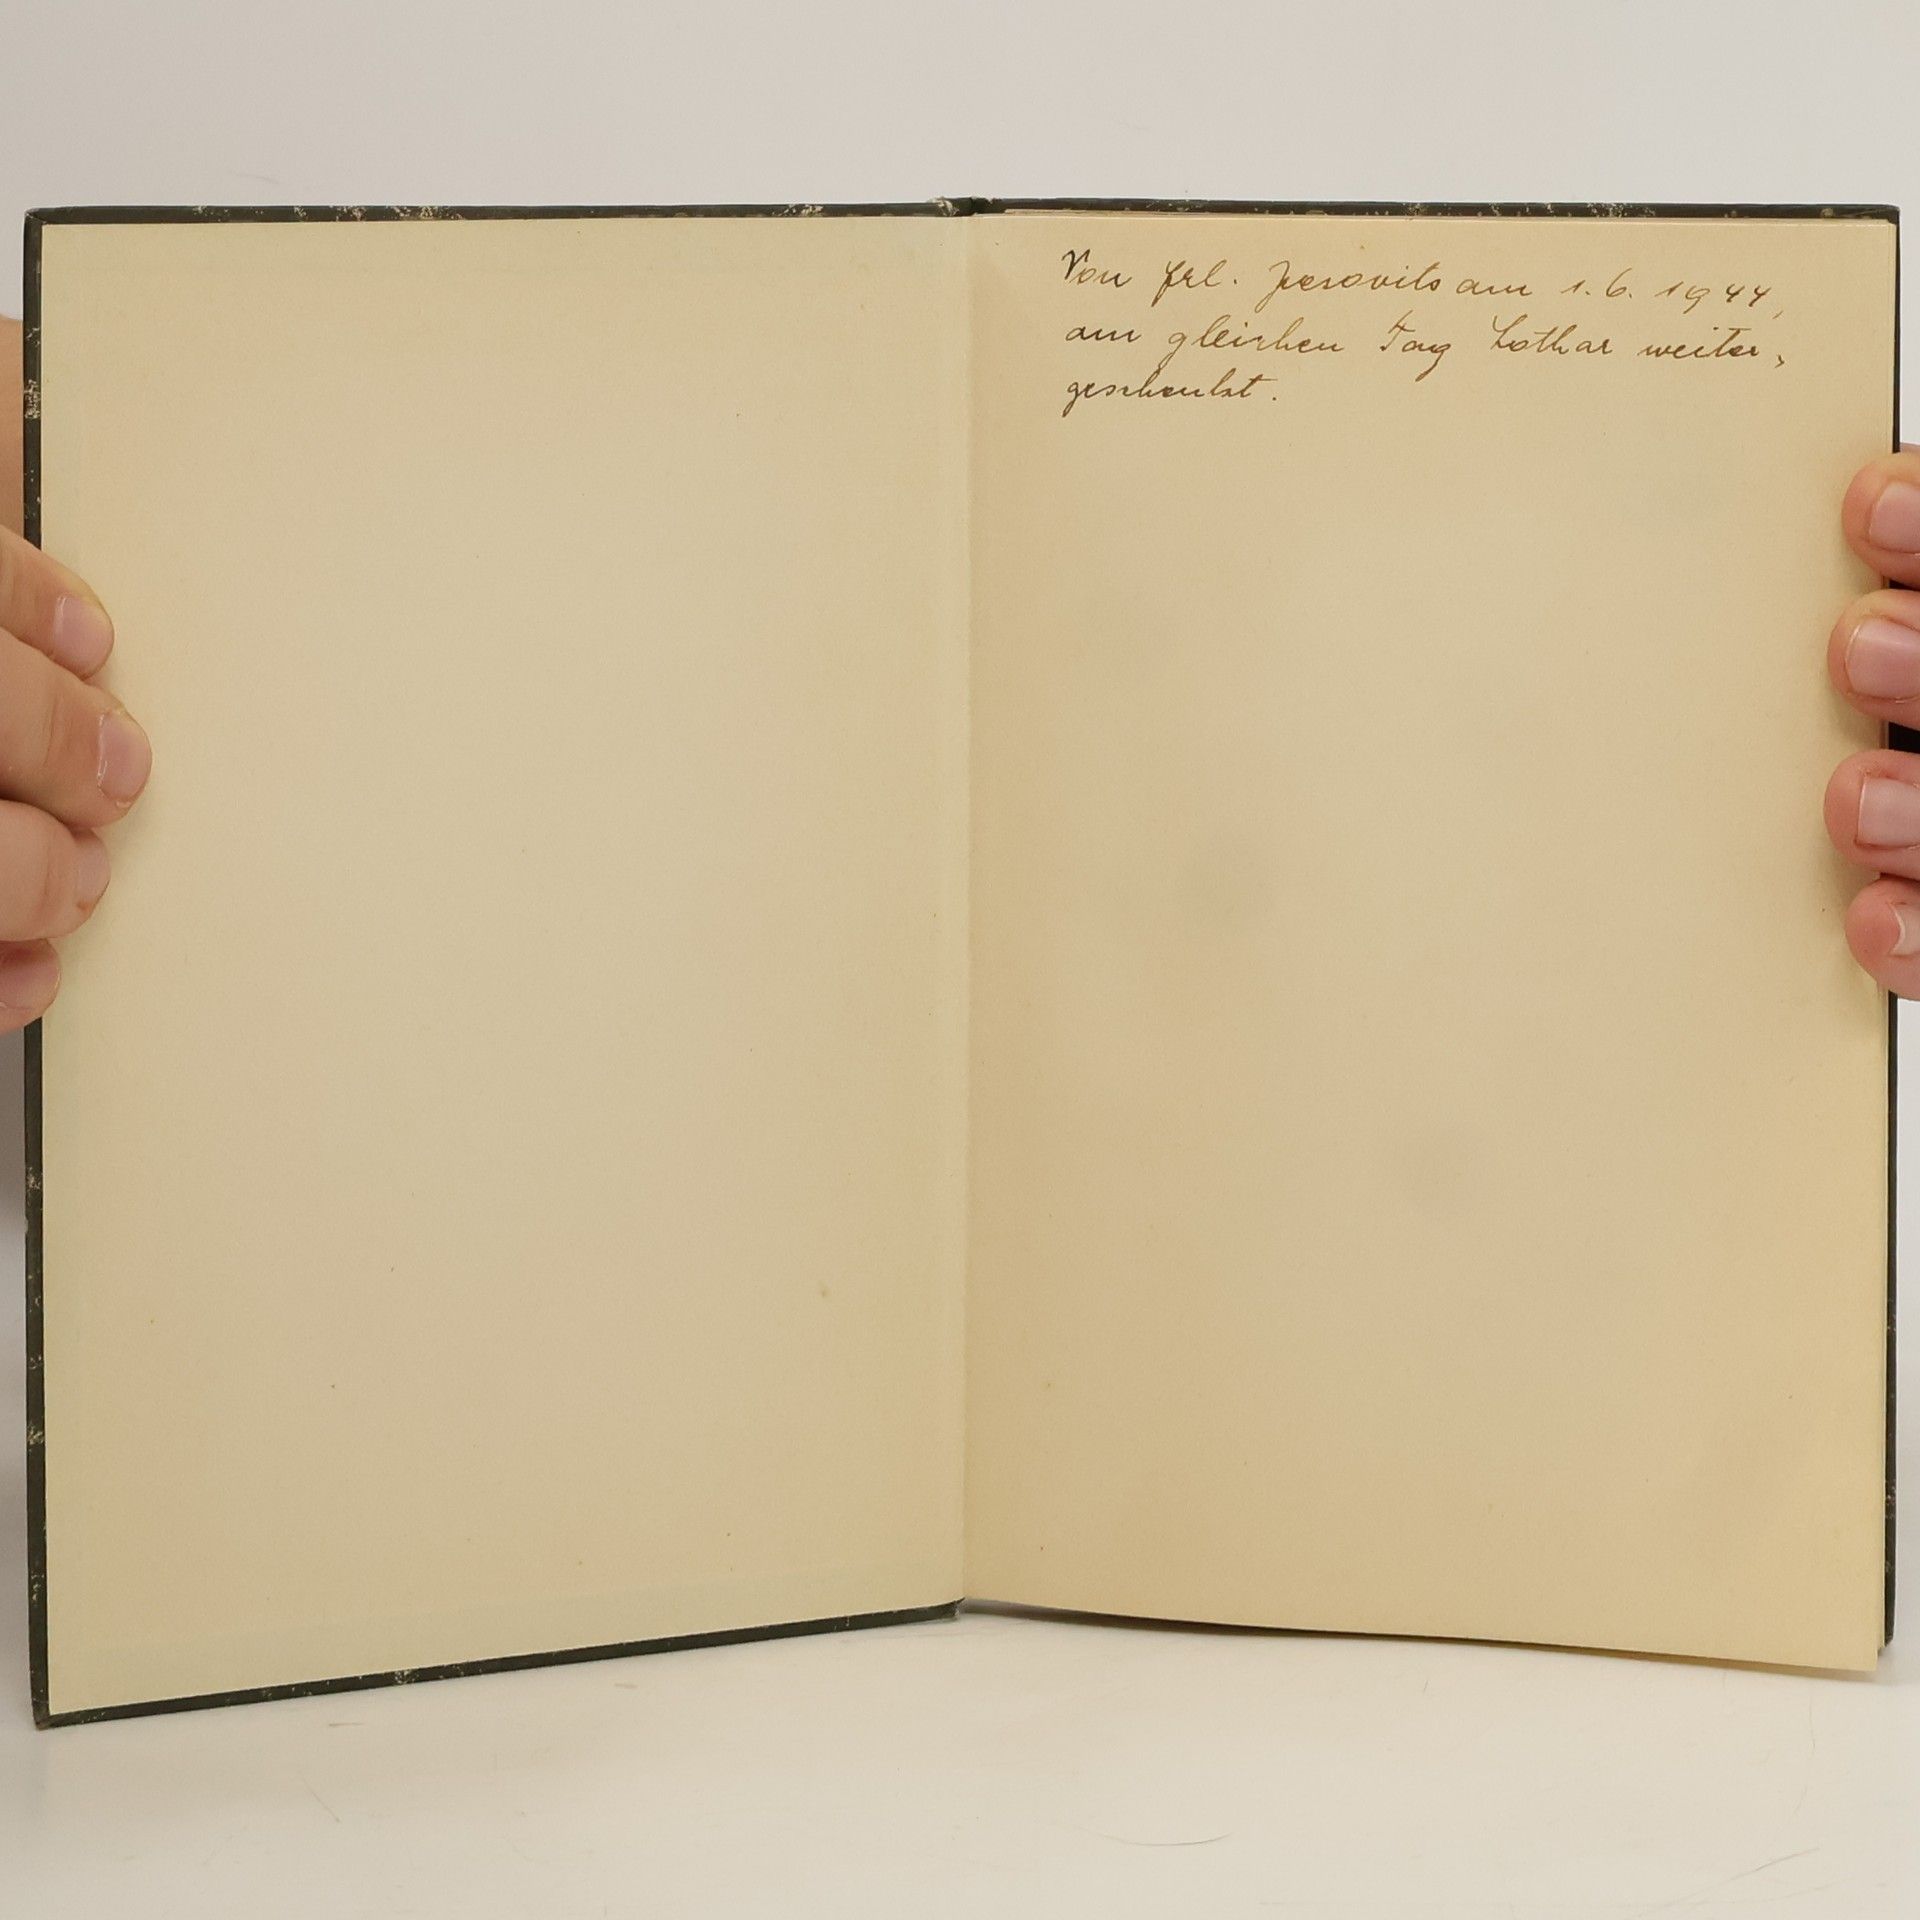 Von Frl. am 1.6.1944,
am gleichen Tag Lothar weiter-
geschenkt.